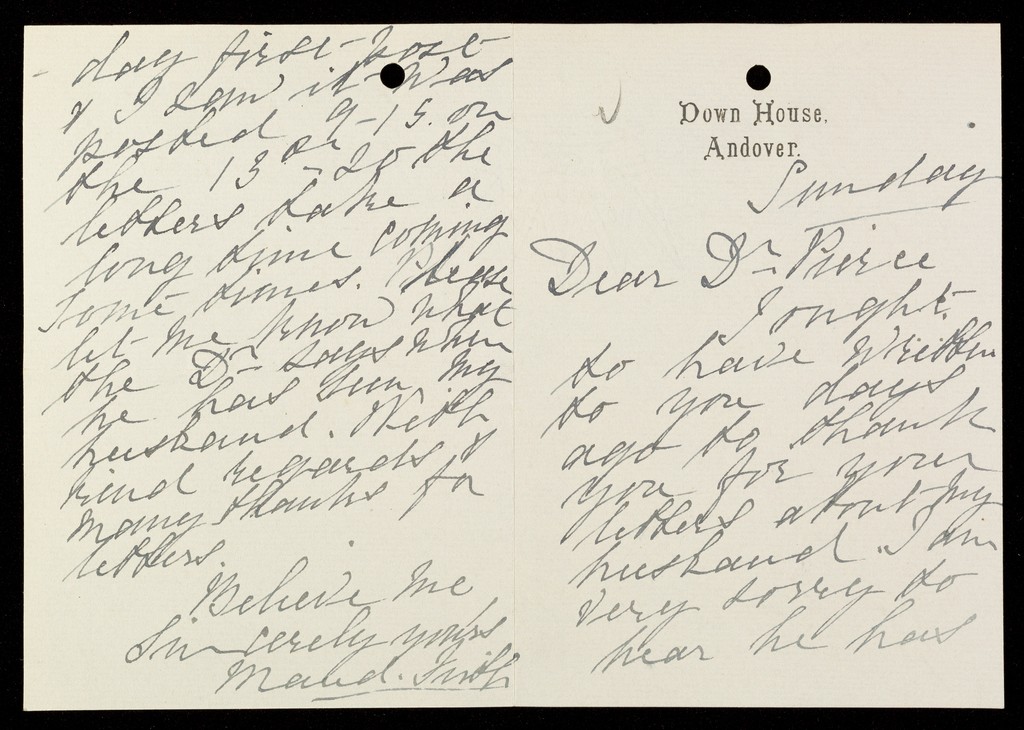 Down House,
Andover.
Sunday
Dear Dr Pierce
I ought
to have written
to you days
ago to thank
you for your
letters about my
husband. I am
very sorry to
hear he has
day first post
& I saw it was
posted 9-15. on
the 13 or 20 the
letters take a
long time coming
some times. Please
let me know what
the Dr says when
he has seen my
husband. With
kind regards &
many thanks for
letters.
Believe me
Sincerely yours
Maud.